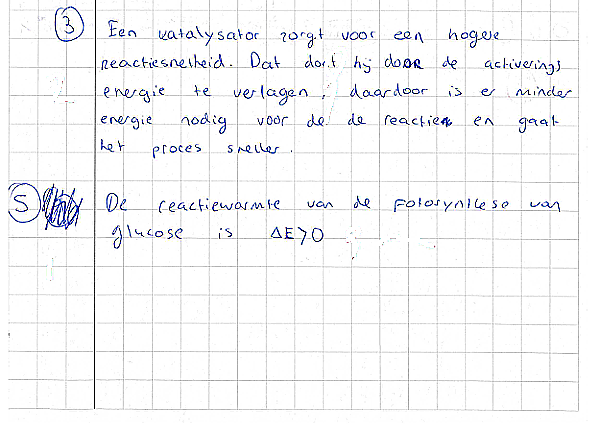 3 Een katalysator zorgt voor een hogere
reactiesnelheid. Dat doet hij door de activerings
energie te verlagen, daardoor is er minder
energie nodig voor de de reactie en gaat
het proces sneller.
5 De reactiewarmte van de fotosynthese van
glucose is ΔE>0